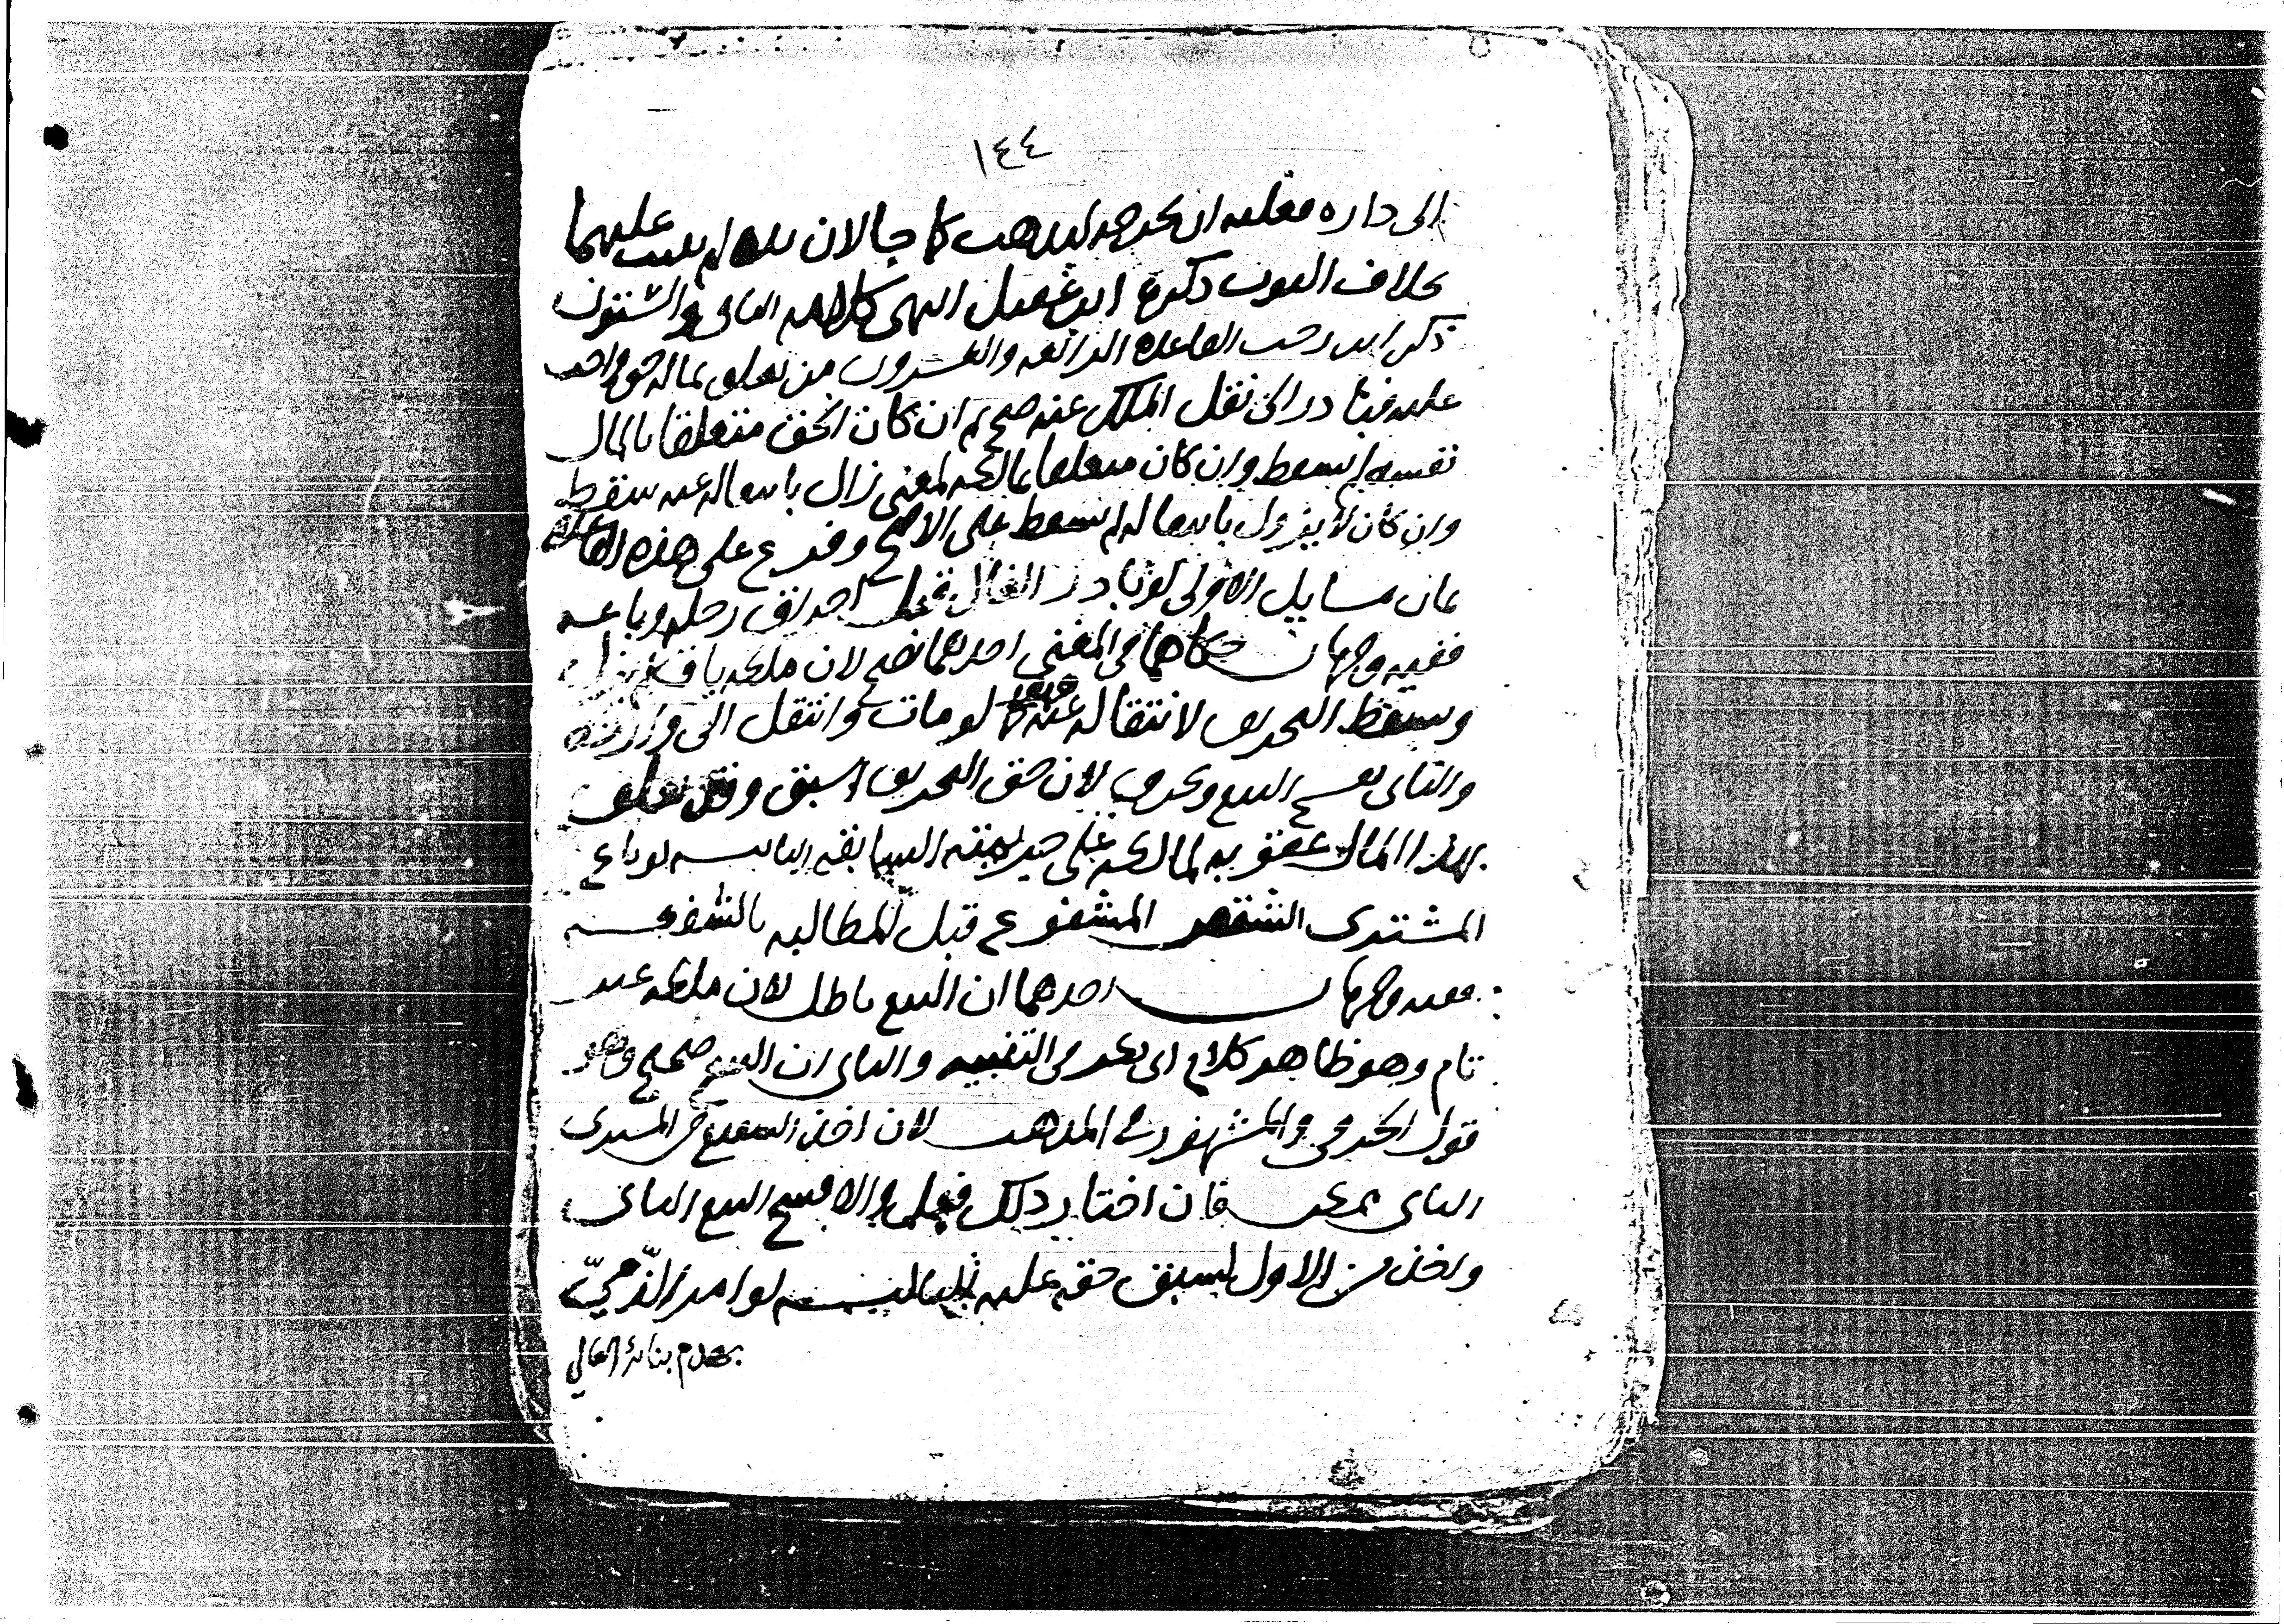 ١٤٤
الى داره فعليه ان يخرجه ليذهب كما جا لان يده لم تثبت عليهما
بخلاف الثوب ذكره ابن عقيل انتهى كلامه الثانى والستون
ذكر ابن رجب القاعدة الرابعة والعشرون من تعلق بماله حق واجب
عليه فبادر الى نقل الملك عنه صح ثم ان كان الحق متعلقا بالمال
نفسه لم يسقط وان كان متعلقا بمالكه لمعنى زال بانتقاله عنه سقط
وان كان لا يزول بانتقاله لم يسقط على الاصح وفرع على هذه القاعدة
ثمان مسايل الاولى لو بادر الغال قبل احراق رحله وباعه
ففيه وجهان حكاهما فى المغنى احدهما يصح لان ملكه باق لم يزل
ويسقط التحريق لانتقاله عنه كما لو مات وانتقل الى وارثه
والثانى يفسخ البيع ويحرق لان حق التحريق اسبق وقد تعلق
بهذا المال عقوبة لمالكه على جريمته السابقة الثانيـــة لو باع
المشترى الشقص المشفوع قبل المطالبه بالشفعـــة
ففيه وجهان احدهما ان البيع باطل لان ملكه غير
تام وهو ظاهر كلام ابى بكر فى التنبيه والثانى ان البيع صحيح وهو
قول الخرقى والمشهور فى المذهب لان اخذ الشفيع من المشترى
الثانى ممكن فان اختار ذلك فعل والا فسخ البيع الثانى
واخذ من الاول لسبق حقه عليه الثالثـــة لو امر الذميّ
بهدم بنائه العالي